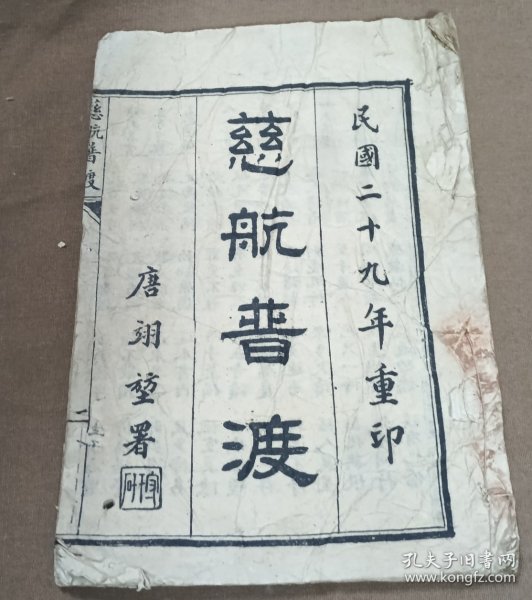 民國二十九年重印
慈航普渡
唐翊堃署
慈航普度
二
孔夫子旧书网
www.kongfz.com